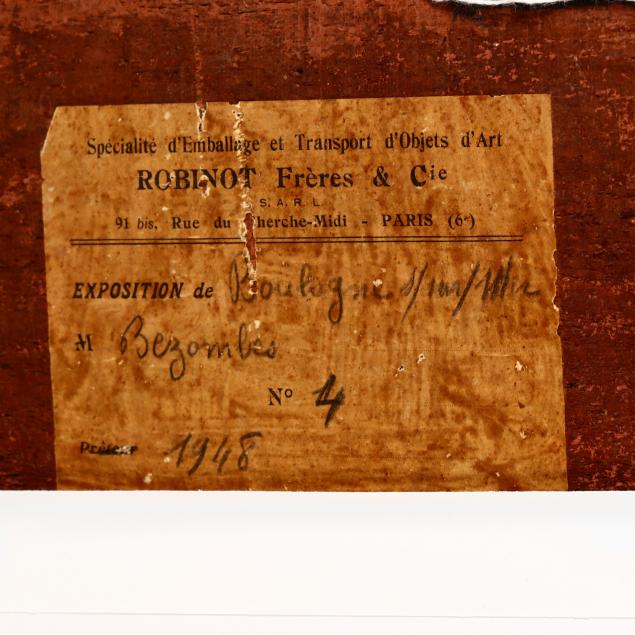 Spécialité d'Emballage et Transport d'Objets d'Art
ROBINOT Frères & Cie
S. A. R. L.
91 bis, Rue du Cherche-Midi - PARIS (6e)
EXPOSITION de Boulogne s/ mer/
M Bezombes
No 4
Prêteur 1948